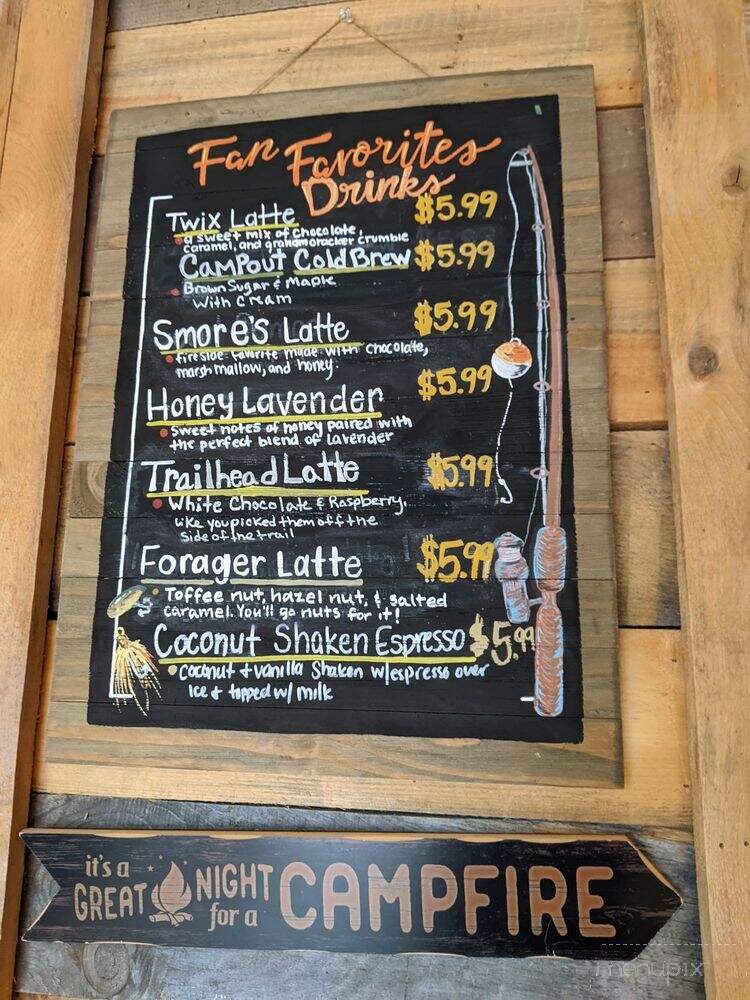 Fan Favorites
Drinks
Twix Latte $5.99
a sweet mix of chocolate,
caramel, and grahamcracker crumble
Campout Cold Brew $5.99
Brown Sugar & Maple
with cream
Smore's Latte $5.99
fireside favorite made with chocolate,
marshmallow, and honey.
Honey Lavender $5.99
Sweet notes of honey paired with
the perfect blend of lavender
Trailhead Latte $5.99
White Chocolate & Raspberry,
Like you picked them off the
side of the trail
Forager Latte $5.99
Toffee nut, hazel nut, & salted
caramel. You'll go nuts for it!
Coconut Shaken Espresso $5.99
coconut + vanilla Shaken w/espresso over
Ice + topped w/ milk
it's a
GREAT NIGHT
for a
CAMPFIRE
menupix